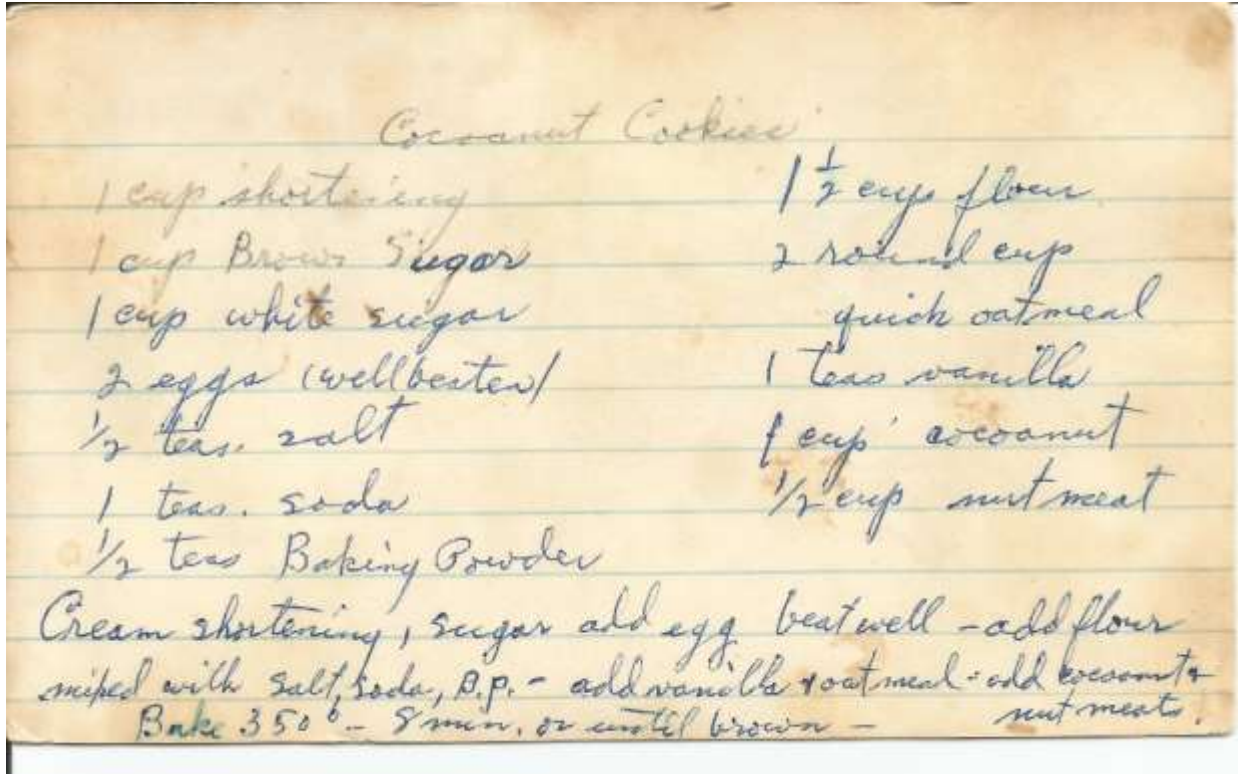 Cocoanut Cookies
1 cup shortening
1 cup Brown Sugar
1 cup white sugar
2 eggs (well beaten)
1/2 teas. salt
1 teas. soda
1/2 teas Baking Powder
1 1/2 cups flour
2 round cup
quick oatmeal
1 teas vanilla
1 cup cocoanut
1/2 cup nut meat
Cream shortening, sugar add egg beat well - add flour
mixed with salt, soda, B.P. - add vanilla & oatmeal - add cocoanut &
nut meats.
Bake 350° - 8 min. or until brown -